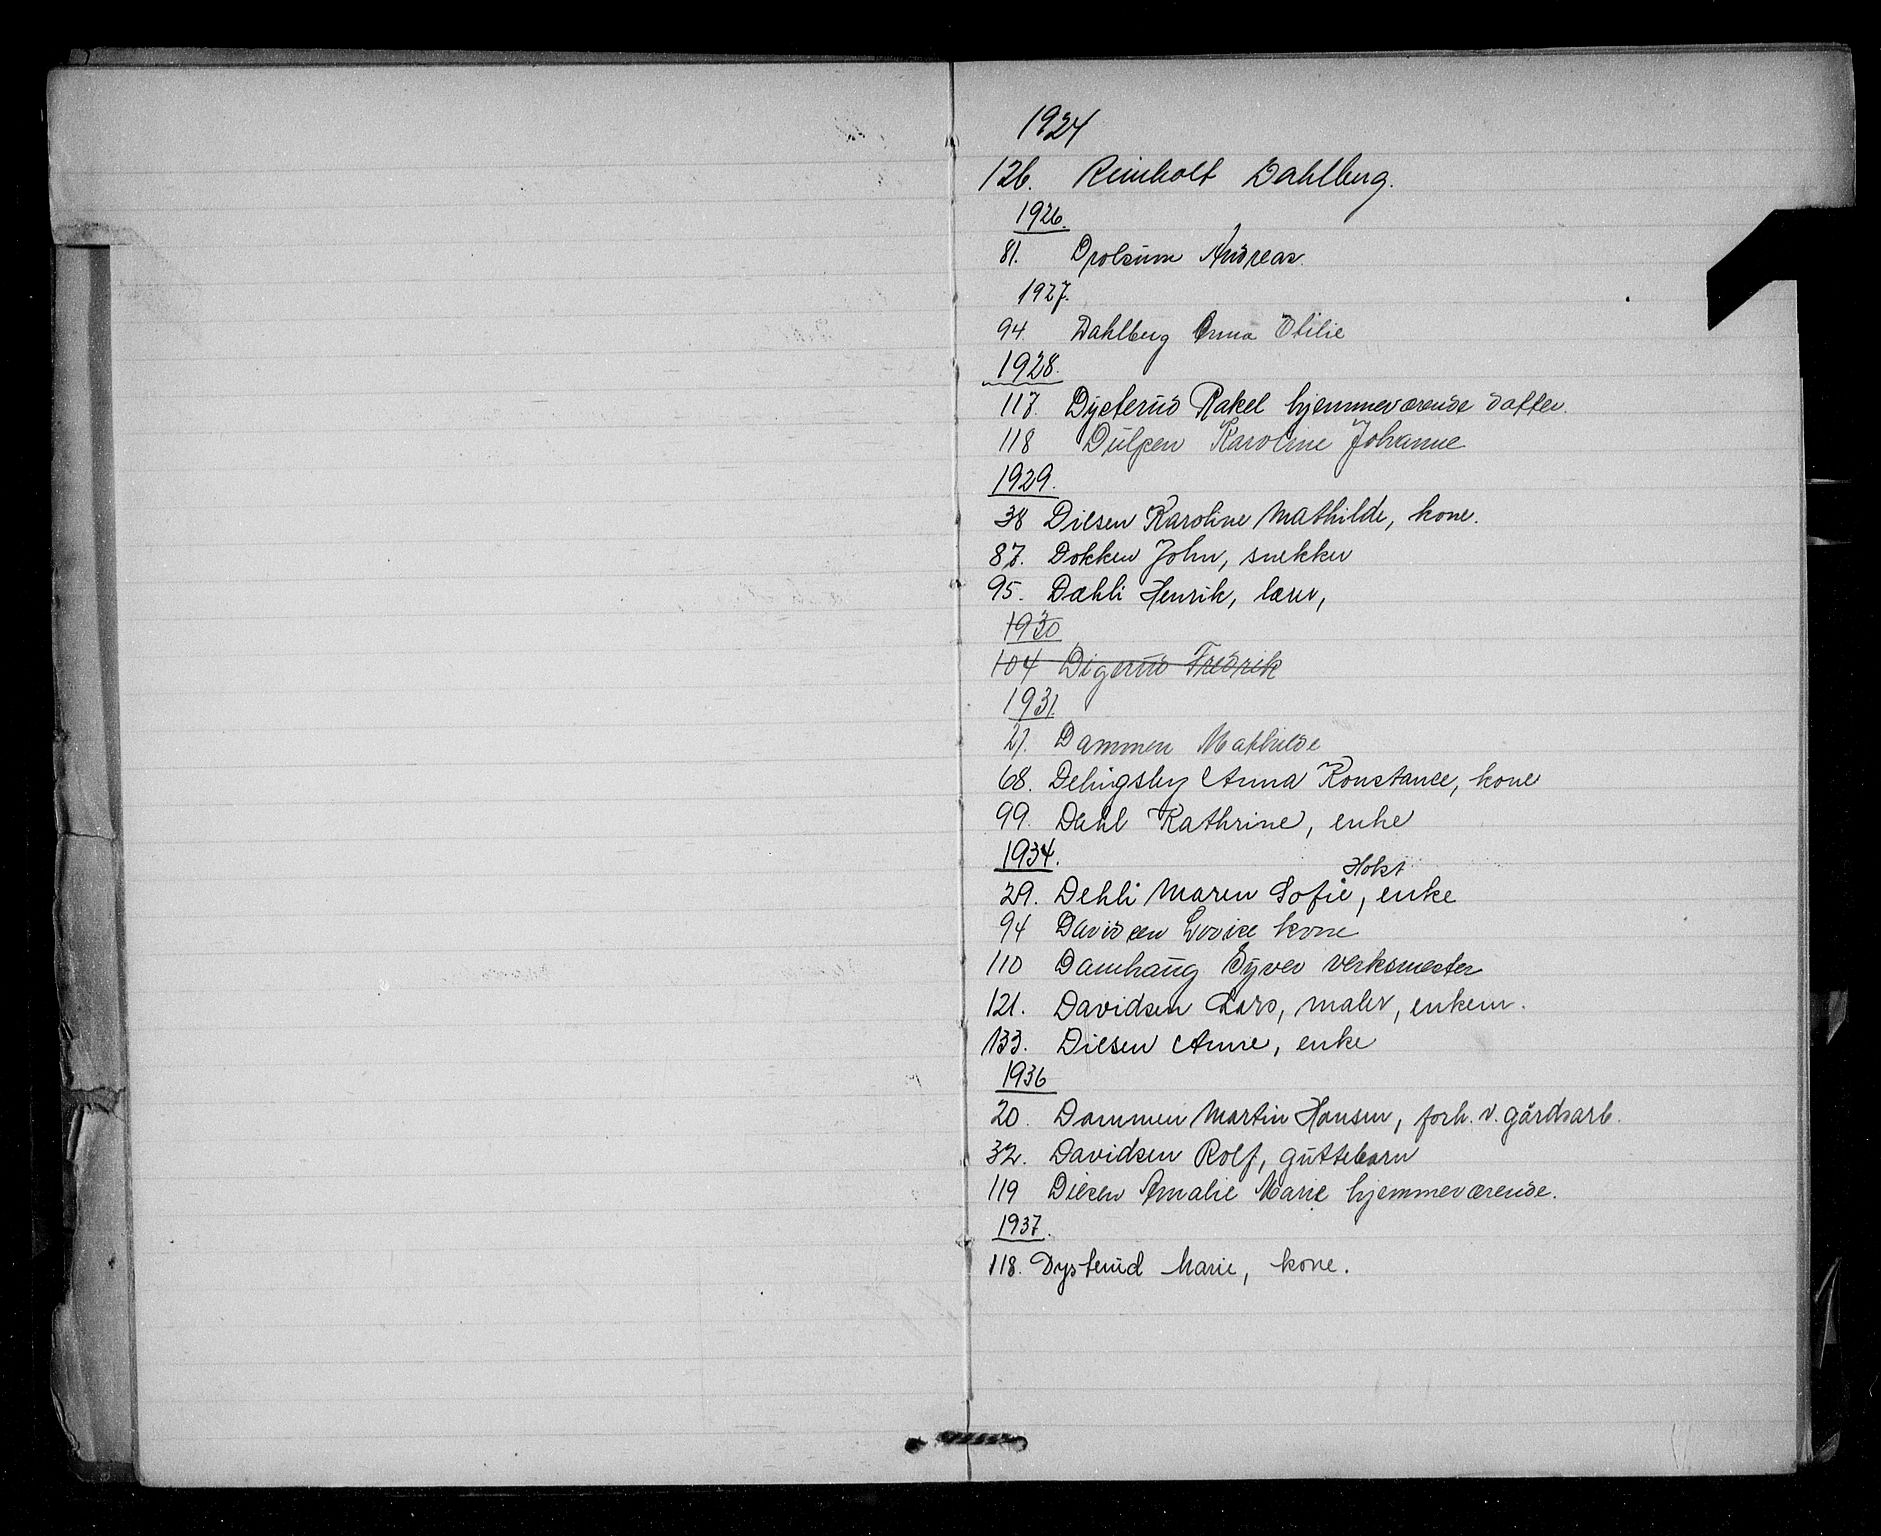 1924
126. Reinholt Dahlberg.
1926.
81. Drolsum Andreas.
1927.
94. Dahlberg Anna Otilie
1928.
117. Dysterud Rakel hjemmeværende datter.
118 Karoline Johanne
1929.
38 Diesen Karoline Mathilde, kone.
87. Dokken John, snekker
95. Dæhli Henrik, lærer,
1930
104 Digerud Fredrik
1931.
27. Dammen Mathilde
68. Anna Konstance, kone
99. Dahl Kathrine, enke
1934.
Holst
29. Dehli Maren Sofie, enke
94 Davidsen Lovise kone
110 Damhaug Syver verksmester
121. Davidsen Lars, maler, enkem.
133. Diesen Anne, enke
1936
20. Dammen Martin Hansen, forh. v. gårdsarb.
32. Davidsen Rolf, guttebarn
119 Diesen Amalie Marie hjemmeværende.
1937.
118. Dysterud Marie, kone.